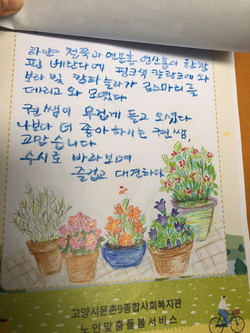 하얀 철쭉과 연분홍 영산홍이 한창
핀 베란다에 핑크색 칼랑코에와
보라빛 캄파눌라가 로즈마리를
데리고 와 모였다
권쌤이 무겁게 들고 오셨다
나보다 더 좋아하시는 권쌤,
고맙습니다
수시로 바라보며
즐겁고 대견하다
고양시문촌9종합사회복지관
노인맞춤돌봄서비스